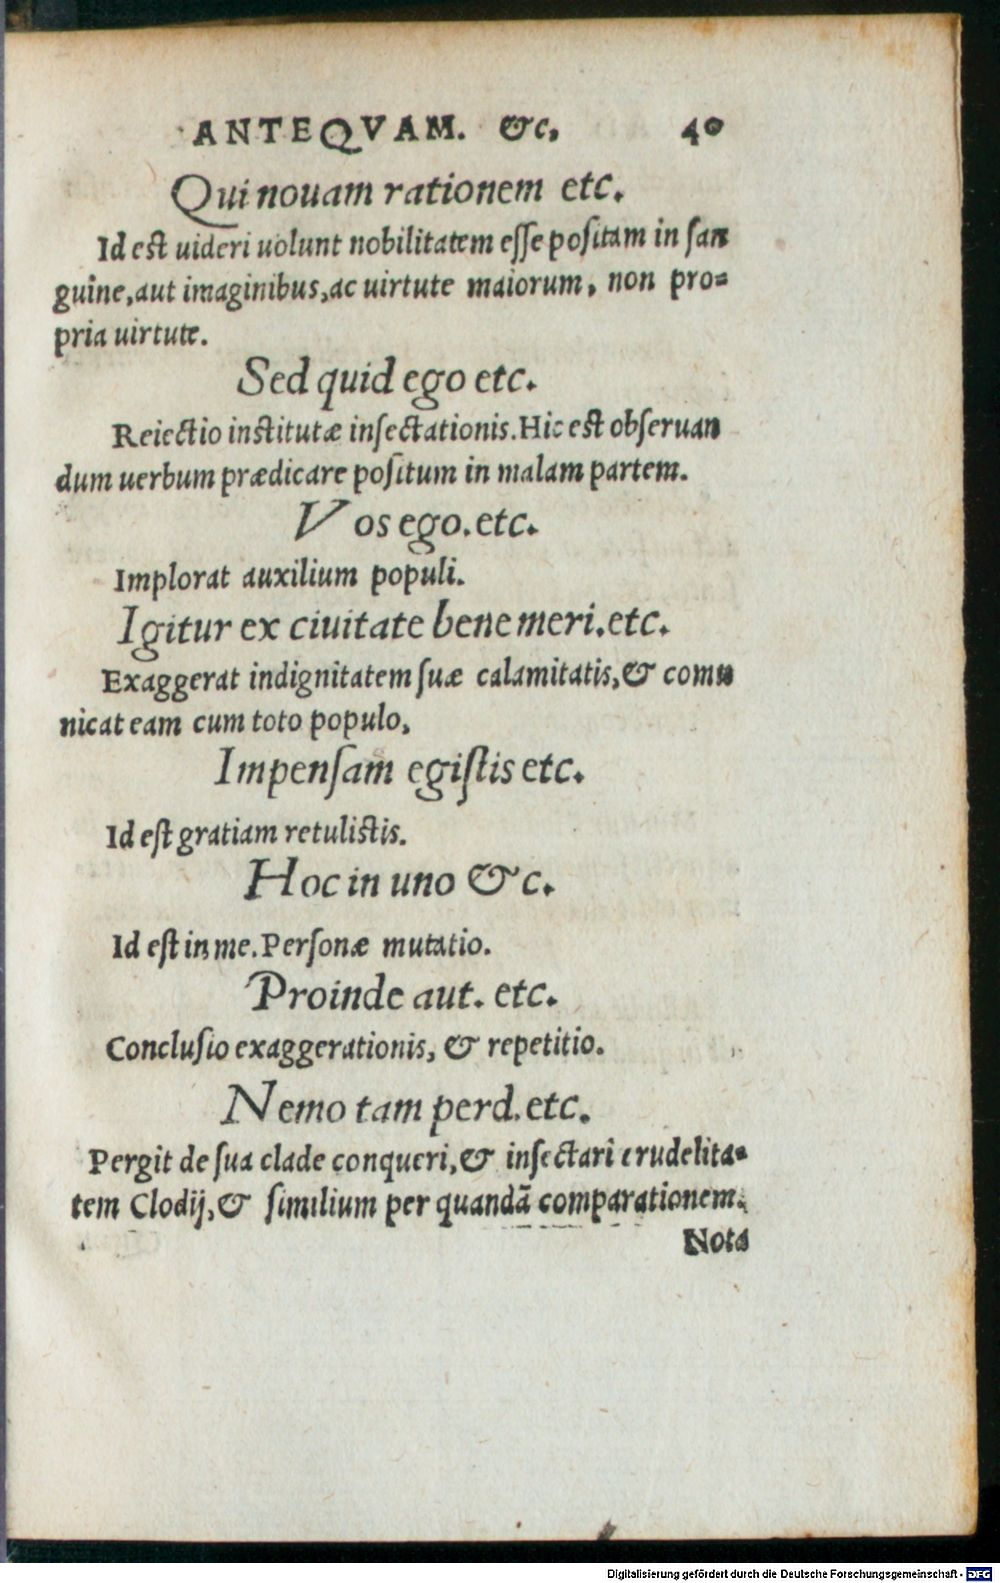 ANTEQVAM. &c. 40
Qui nouam rationem etc.
Id est uideri uolunt nobilitatem esse positam in san
guine, aut imaginibus, ac uirtute maiorum, non pro=
pria uirtute.
Sed quid ego etc.
Reiectio institutæ insectationis. Hic est obseruan
dum uerbum prædicare positum in malam partem.
Vos ego. etc.
Implorat auxilium populi.
Igitur ex ciuitate bene meri. etc.
Exaggerat indignitatem suæ calamitatis, & comu
nicat eam cum toto populo,
Impensam egistis etc.
Id est gratiam retulistis.
Hoc in uno &c.
Id est in me. Personæ mutatio.
Proinde aut. etc.
Conclusio exaggerationis, & repetitio.
Nemo tam perd. etc.
Pergit de sua clade conqueri, & insectari crudelita=
tem Clodij, & similium per quandã comparationem.
Nota
Digitalisierung gefördert durch die Deutsche Forschungsgemeinschaft - DFG